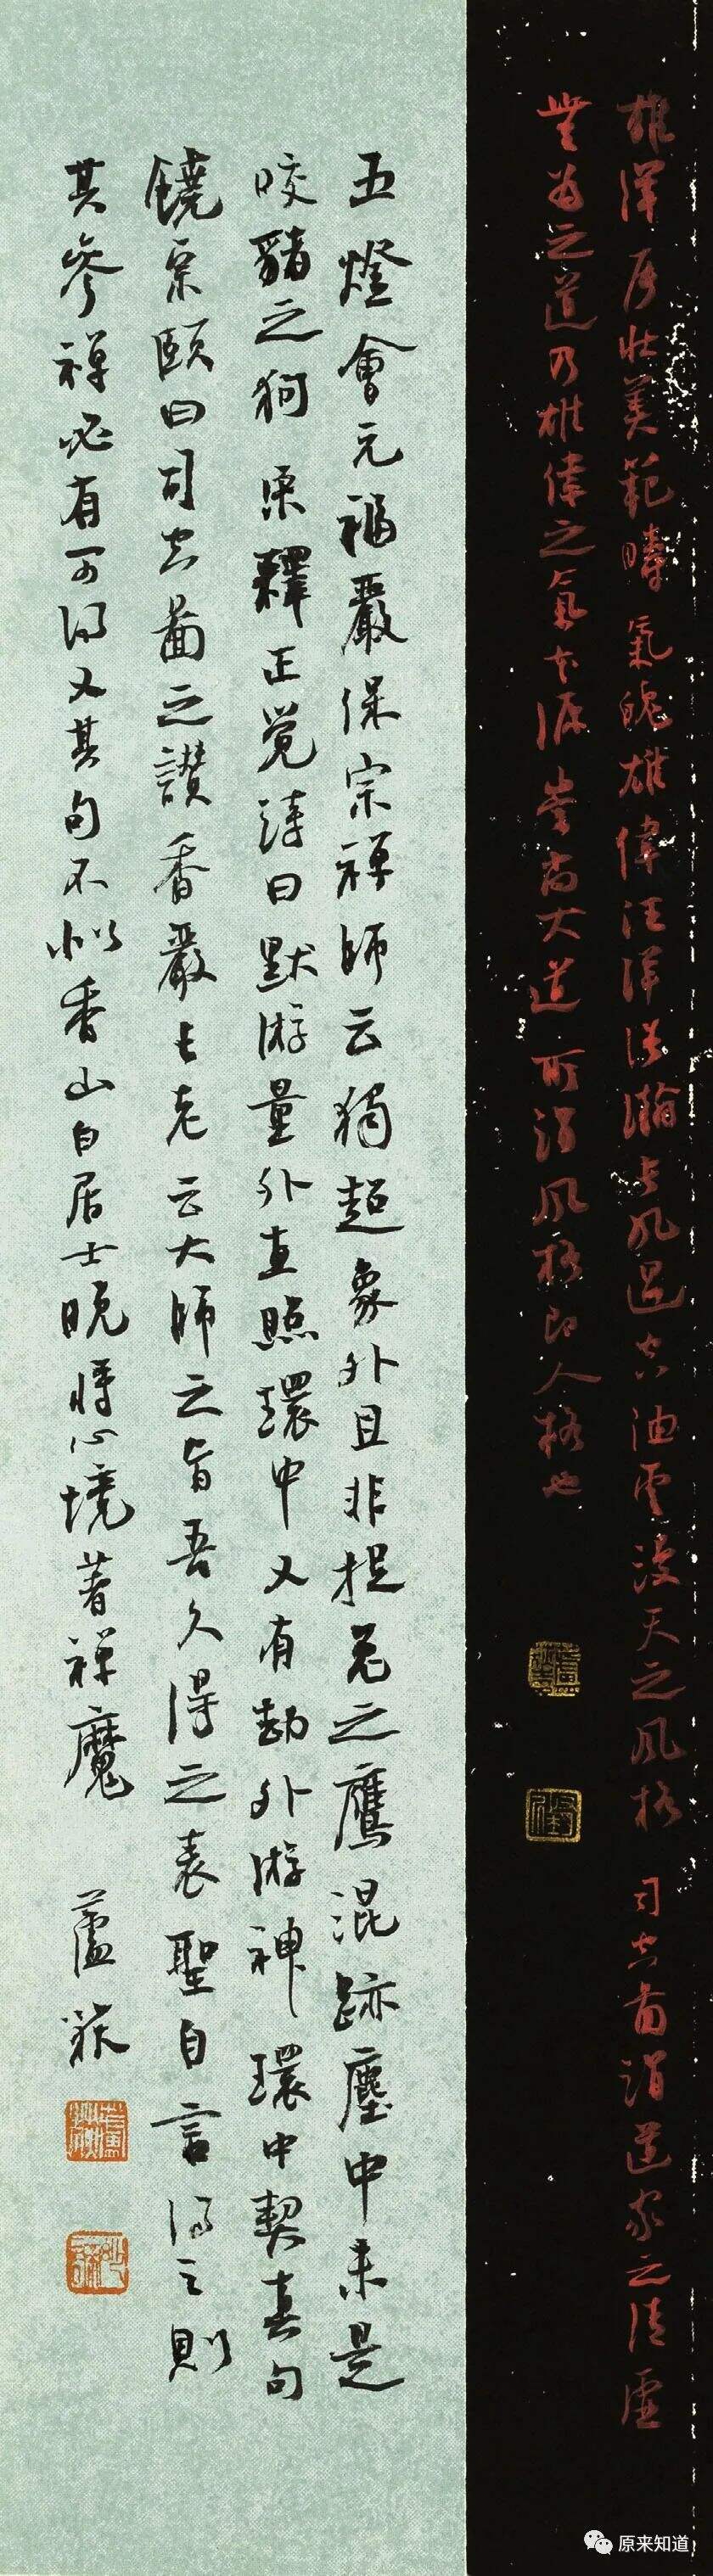 雄渾屬壯美範疇氣魄雄偉汪洋浩瀚長風過空油雲漫天之風格 司空圖謂道家之清虛
無為之道乃雄偉之氣本源崇尚大道所謂風格即人格也
五燈會元福嚴保宗禪師云獨超象外且非捉兔之鷹混跡塵中未是
咬豬之狗 宋釋正覺詩曰默游量外直照環中又有劫外游神環中契真句
饒宗頤曰司空圖之讚香嚴長老云大師之旨吾久得之表聖自言得之則
其參禪必有可得又其句不似香山白居士晚將心境著禪魔
蘆荻
原来知道